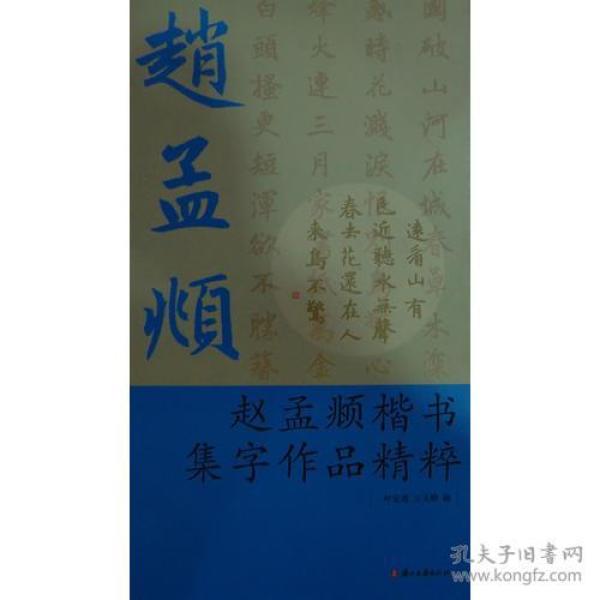 趙孟頫
國破山河在城春草木深
時花濺淚恨
烽火連三月家
白頭搔更短渾欲不勝簪
遠看山有
色近聽水無聲
春去花還在人
來鳥不驚
赵孟頫楷书
集字作品精粹
孔夫子旧书网
www.kongfz.com